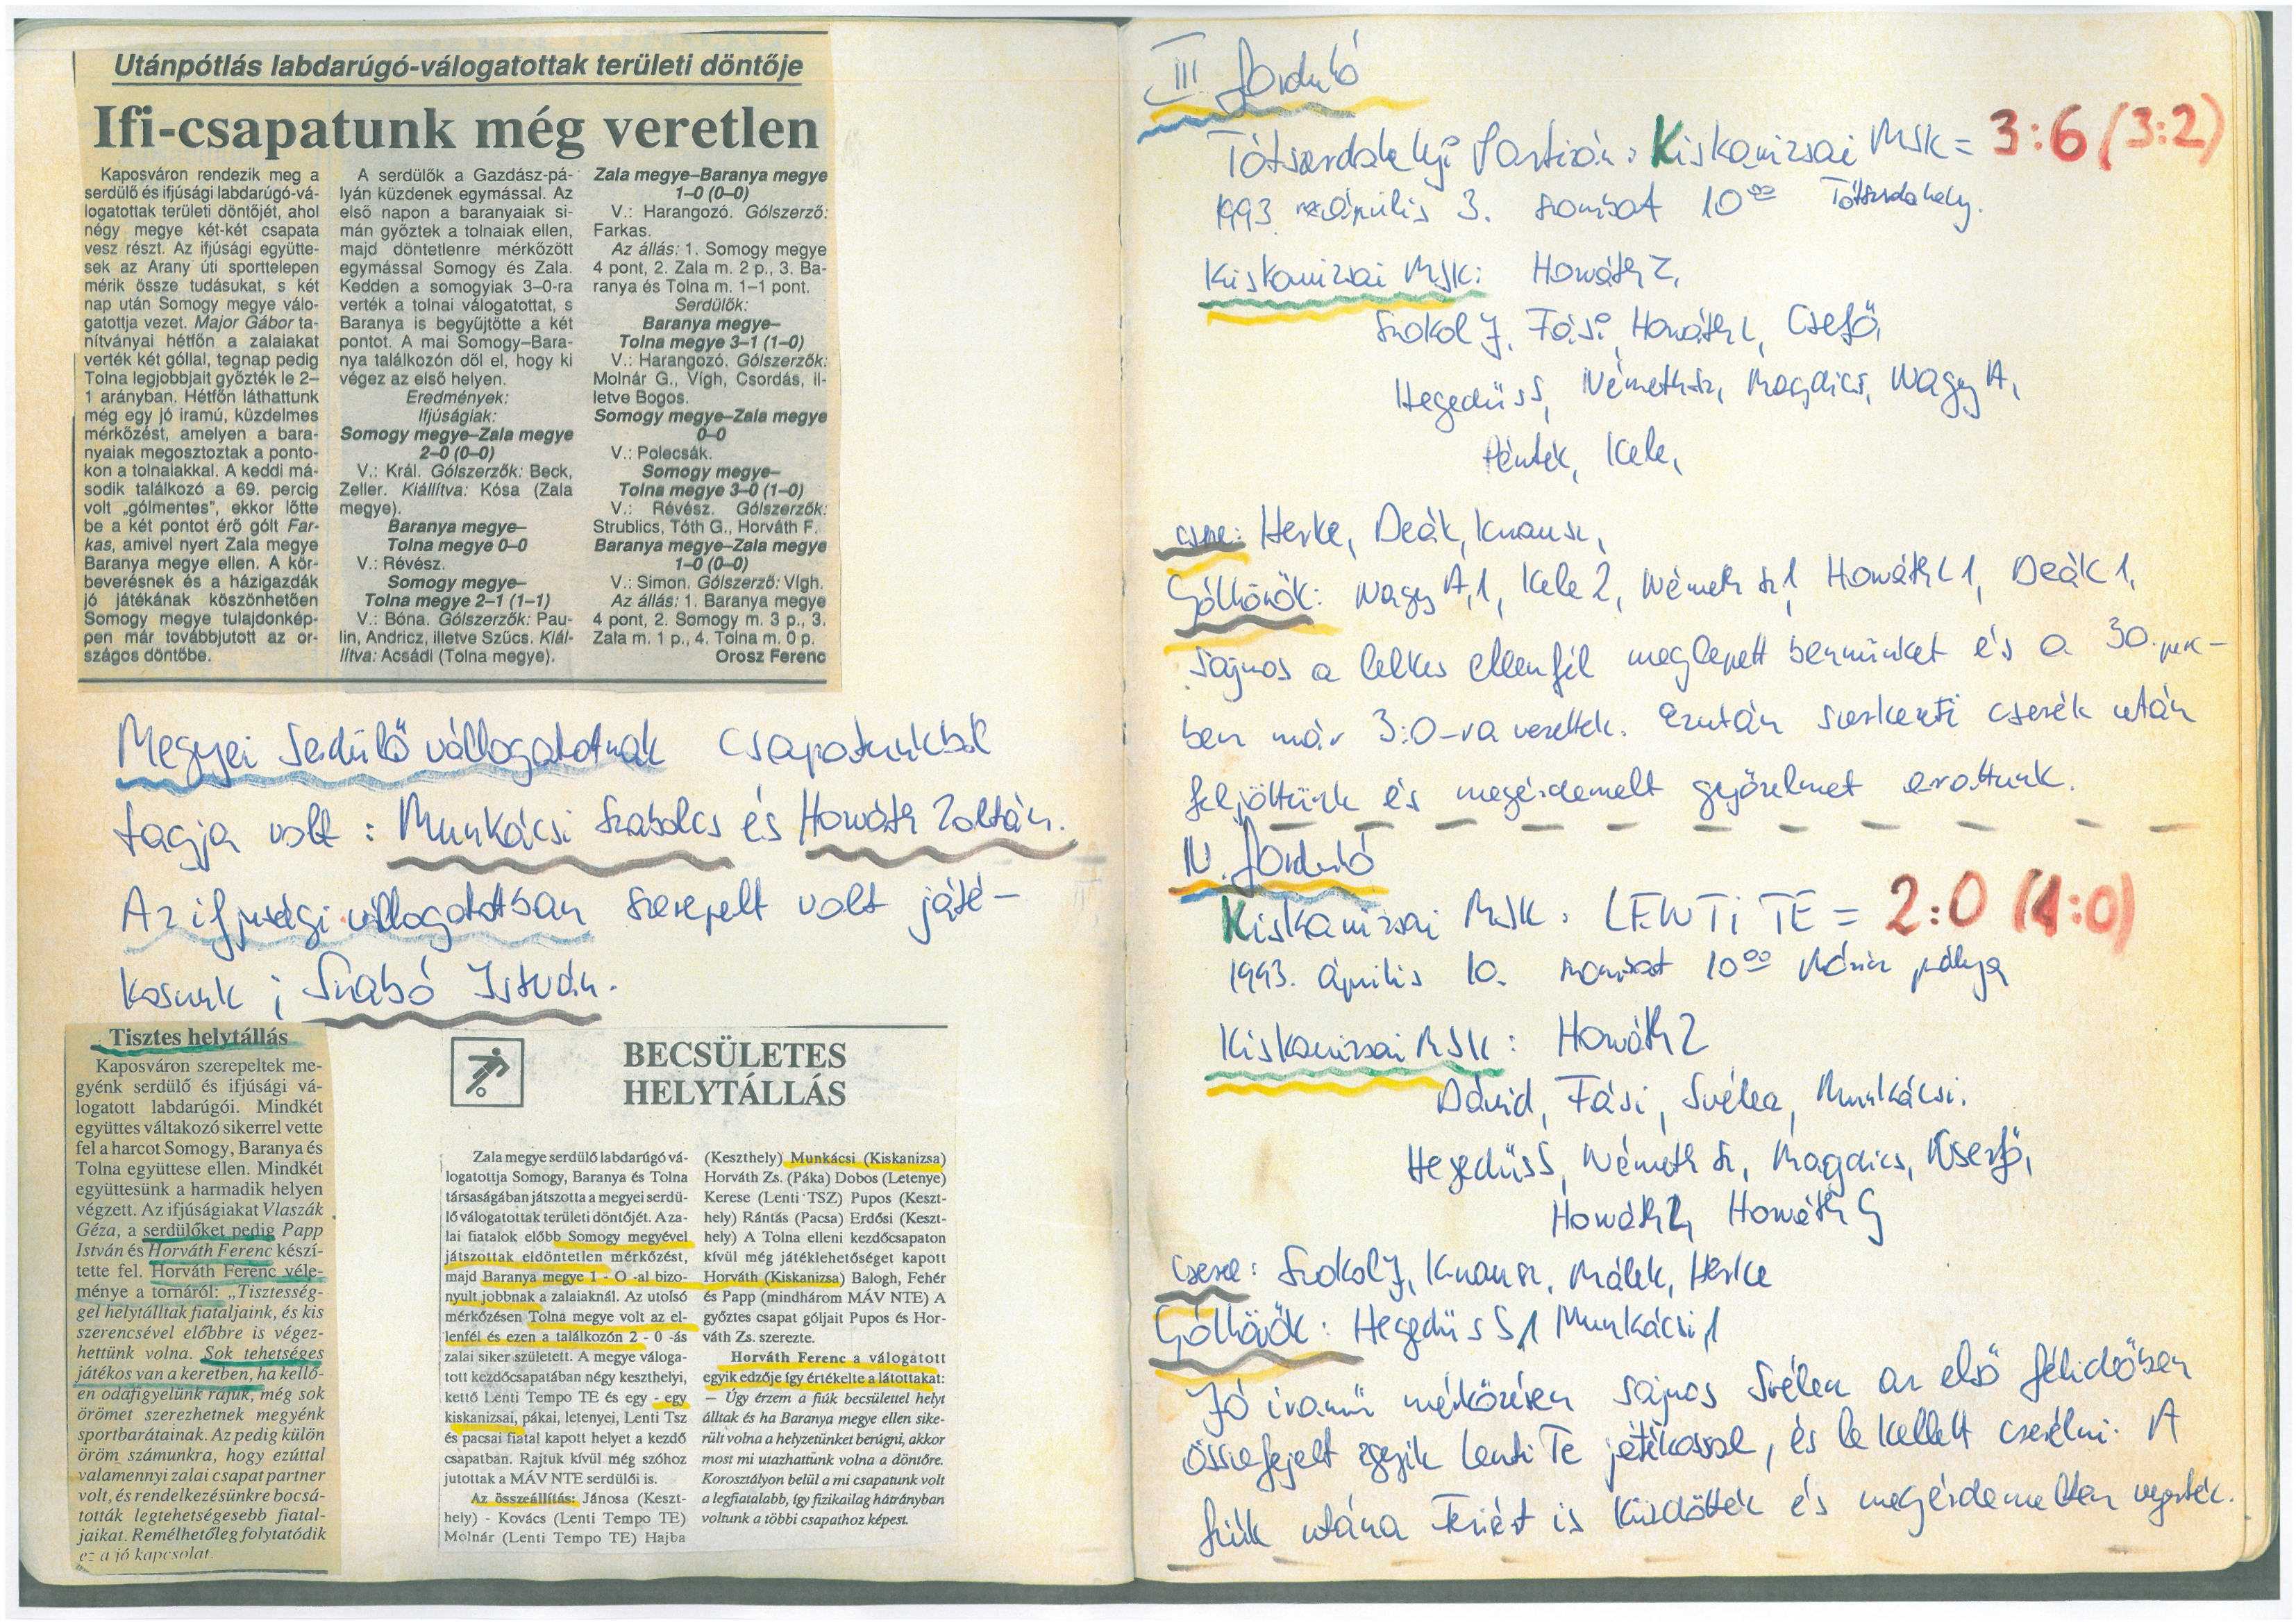 Utánpótlás labdarúgó-válogatottak területi döntője
Ifi-csapatunk még veretlen
Kaposváron rendezik meg a
serdülő és ifjúsági labdarúgó-vá-
logatottak területi döntőjét, ahol
négy megye két-két csapata
vesz részt. Az ifjúsági együtte-
sek az Arany úti sporttelepen
mérik össze tudásukat, s két
nap után Somogy megye válo-
gatottja vezet. Major Gábor ta-
nítványai hétfőn a zalaiakat
verték két góllal, tegnap pedig
Tolna legjobbjait győzték le 2–
1 arányban. Hétfőn láthattunk
még egy jó iramú, küzdelmes
mérkőzést, amelyen a bara-
nyaiak megosztoztak a ponto-
kon a tolnaiakkal. A keddi má-
sodik találkozó a 69. percig
volt „gólmentes”, ekkor lőtte
be a két pontot érő gólt Far-
kas, amivel nyert Zala megye
Baranya megye ellen. A kör-
beverésnek és a házigazdák
jó játékának köszönhetően
Somogy megye tulajdonkép-
pen már továbbjutott az or-
szágos döntőbe.
A serdülők a Gazdász-pá-
lyán küzdenek egymással. Az
első napon a baranyaiak si-
mán győztek a tolnaiak ellen,
majd döntetlenre mérkőzött
egymással Somogy és Zala.
Kedden a somogyiak 3–0-ra
verték a tolnai válogatottat, s
Baranya is begyűjtötte a két
pontot. A mai Somogy–Bara-
nya találkozón dől el, hogy ki
végez az első helyen.
Eredmények:
Ifjúságiak:
Somogy megye–Zala megye
2–0 (0–0)
V.: Král. Gólszerzők: Beck,
Zeller. Kiállítva: Kósa (Zala
megye).
Baranya megye–
Tolna megye 0–0
V.: Révész.
Somogy megye–
Tolna megye 2–1 (1–1)
V.: Bóna. Gólszerzők: Pau-
lin, Andricz, illetve Szűcs. Kiál-
lítva: Acsádi (Tolna megye).
Zala megye–Baranya megye
1–0 (0–0)
V.: Harangozó. Gólszerző:
Farkas.
Az állás: 1. Somogy megye
4 pont, 2. Zala m. 2 p., 3. Ba-
ranya és Tolna m. 1–1 pont.
Serdülők:
Baranya megye–
Tolna megye 3–1 (1–0)
V.: Harangozó. Gólszerzők:
Molnár G., Vígh, Csordás, il-
letve Bogos.
Somogy megye–Zala megye
0–0
V.: Polecsák.
Somogy megye–
Tolna megye 3–0 (1–0)
V.: Révész. Gólszerzők:
Strublics, Tóth G., Horváth F.
Baranya megye–Zala megye
1–0 (0–0)
V.: Simon. Gólszerző: Vígh.
Az állás: 1. Baranya megye
4 pont, 2. Somogy m. 3 p., 3.
Zala m. 1 p., 4. Tolna m. 0 p.
Orosz Ferenc
Megyei serdülő válogatottnak csapatunkból
tagja volt : Munkácsi Szabolcs és Horváth Zoltán.
Az ifjusági válogatottban szerepelt volt játé-
kosunk ; Szabó István.
Tisztes helytállás
Kaposváron szerepeltek me-
gyénk serdülő és ifjúsági vá-
logatott labdarúgói. Mindkét
együttes váltakozó sikerrel vette
fel a harcot Somogy, Baranya és
Tolna együttese ellen. Mindkét
együttesünk a harmadik helyen
végzett. Az ifjúságiakat Vlaszák
Géza, a serdülőket pedig Papp
István és Horváth Ferenc készí-
tette fel. Horváth Ferenc véle-
ménye a tornáról: „Tisztesség-
gel helytálltak fiataljaink, és kis
szerencsével előbbre is végez-
hettünk volna. Sok tehetséges
játékos van a keretben, ha kellő-
en odafigyelünk rájuk, még sok
örömet szerezhetnek megyénk
sportbarátainak. Az pedig külön
öröm számunkra, hogy ezúttal
valamennyi zalai csapat partner
volt, és rendelkezésünkre bocsá-
tották legtehetségesebb fiatal-
jaikat. Remélhetőleg folytatódik
ez a jó kapcsolat.
BECSÜLETES
HELYTÁLLÁS
Zala megye serdülő labdarúgó vá-
logatottja Somogy, Baranya és Tolna
társaságában játszotta a megyei serdü-
lő válogatottak területi döntőjét. A za-
lai fiatalok előbb Somogy megyével
játszottak eldöntetlen mérkőzést,
majd Baranya megye 1 - O -al bizo-
nyult jobbnak a zalaiaknál. Az utolsó
mérkőzésen Tolna megye volt az el-
lenfél és ezen a találkozón 2 - 0 -ás
zalai siker született. A megye váloga-
tott kezdőcsapatában négy keszthelyi,
kettő Lenti Tempo TE és egy - egy
kiskanizsai, pákai, letenyei, Lenti Tsz
és pacsai fiatal kapott helyet a kezdő
csapatban. Rajtuk kívül még szóhoz
jutottak a MÁV NTE serdülői is.
Az összeállítás: Jánosa (Keszt-
hely) - Kovács (Lenti Tempo TE)
Molnár (Lenti Tempo TE) Hajba
(Keszthely) Munkácsi (Kiskanizsa)
Horváth Zs. (Páka) Dobos (Letenye)
Kerese (Lenti TSZ) Pupos (Keszt-
hely) Rántás (Pacsa) Erdősi (Keszt-
hely) A Tolna elleni kezdőcsapaton
kívül még játéklehetőséget kapott
Horváth (Kiskanizsa) Balogh, Fehér
és Papp (mindhárom MÁV NTE) A
győztes csapat góljait Pupos és Hor-
váth Zs. szerezte.
Horváth Ferenc a válogatott
egyik edzője így értékelte a látottakat:
– Úgy érzem a fiúk becsülettel helyt
álltak és ha Baranya megye ellen sike-
rült volna a helyzetünket berúgni, akkor
most mi utazhattunk volna a döntőre.
Korosztályon belül a mi csapatunk volt
a legfiatalabb, így fizikailag hátrányban
voltunk a többi csapathoz képest.
III forduló
Tótszerdahelyi Partizán : Kiskanizsai MSK = 3:6 (3:2)
1993. április 3. szombat 10⁰⁰ Tótszerdahely.
Kiskanizsai MSK: Horváth Z,
Szokol J, Fási, Horváth L, Cserfő,
Hegedüs S, Németh Sz, Magdics, Nagy A,
Péntek, Kele,
csere: Herke, Deák, Knausz,
Góllövők: Nagy A,1, Kele 2, Németh Sz 1, Horváth L 1, Deák 1,
Sajnos a lelkes ellenfél meglepett bennünket és a 30. per-
ben már 3:0-ra vezettek. Ezután szerkezeti cserék után
feljöttünk és megérdemelt győzelmet arattunk.
IV. forduló
Kiskanizsai MSK : LENTI TE = 2:0 (1:0)
1993. április 10. szombat 10⁰⁰ Móricz pálya
Kiskanizsai MSK : Horváth Z
Dávid, Fási, Svélecz, Munkácsi.
Hegedüs S, Németh Sz, Magdics, Cserfő,
Horváth L, Horváth G
Csere: Szokol J, Knausz, Málek, Herke
Góllövők : Hegedüs S 1, Munkácsi 1
Jó iramú mérkőzésen sajnos Svélecz az első félidőben
összefejelt egyik Lenti Te játékossal, és le kellett cserélni. A
fiúk utána Feriért is küzdöttek és megérdemelten nyertek.